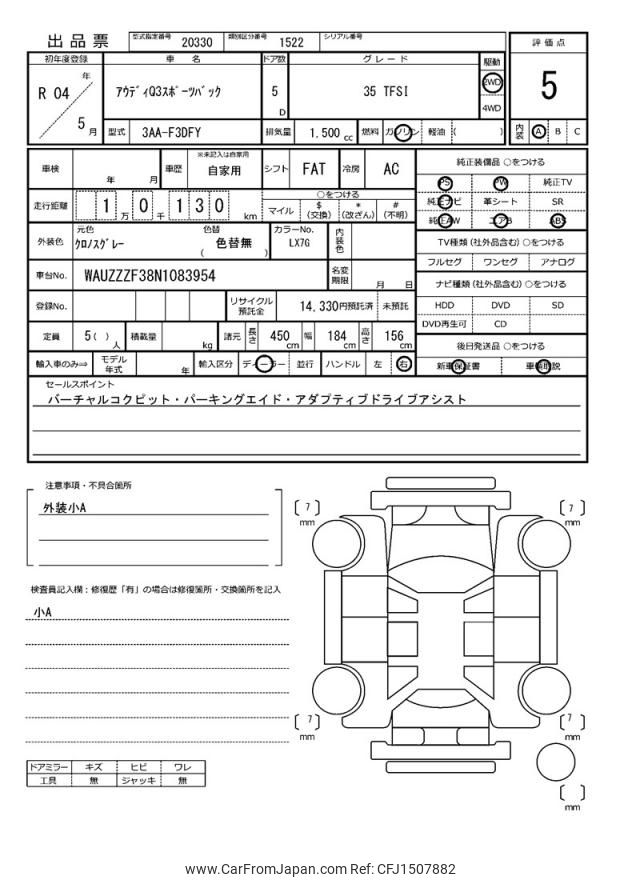 出品票 型式指定番号 20330 類別区分番号 1522 シリアル番号
評価点
5
内装 A B C
初年度登録 車名 ドア数 グレード 駆動
R 04 年 5 月
ｱｳﾃﾞｨQ3ｽﾎﾟｰﾂﾊﾞｯｸ 5 D 35 TFSI 2WD
4WD
型式 3AA-F3DFY 排気量 1.500 cc 燃料 ガソリン 軽油 ( )
車検 年 月 車歴 ※未記入は自家用 自家用 シフト FAT 冷房 AC
走行距離 1 万 0 千 1 3 0 km
○をつける
マイル $ (交換) * (改ざん) # (不明)
外装色 元色 ｸﾛﾉｽｸﾞﾚｰ 色替 ( 色替無 ) カラーNo. LX7G 内装色
車台No. WAUZZZF38N1083954 名変期限 月 日
登録No. リサイクル預託金 14,330円預託済 未預託
定員 5 ( ) 人 積載量 kg 諸元 長さ 450 cm 幅 184 cm 高さ 156 cm
輸入車のみ⇨ モデル年式 年 輸入区分 ディーラー 並行 ハンドル 左 右
純正装備品 ○をつける
PS PW 純正TV
純正ナビ 革シート SR
純正AW エアB ABS
TV種類 (社外品含む) ○をつける
フルセグ ワンセグ アナログ
ナビ種類 (社外品含む) ○をつける
HDD DVD SD
DVD再生可 CD
後日発送品 ○をつける
新車保証書 車輌取説
セールスポイント
バーチャルコクピット・パーキングエイド・アダプティブドライブアシスト
注意事項・不具合箇所
外装小A
検査員記入欄：修復歴「有」の場合は修復箇所・交換箇所を記入
小A
ドアミラー キズ ヒビ ワレ
工具 無 ジャッキ 無
[ 7 ] mm
[ 7 ] mm
[ 7 ] mm
[ 7 ] mm
[ ] mm
www.CarFromJapan.com Ref: CFJ1507882